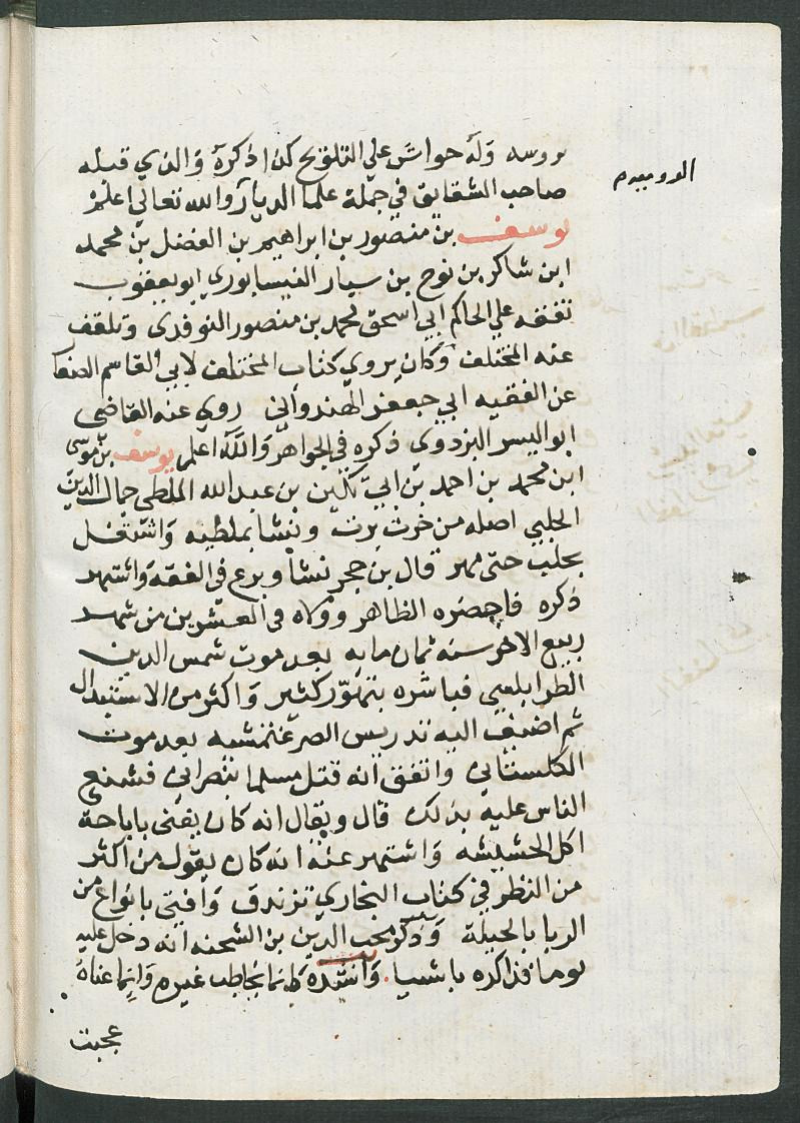 بروسه وله حواش علي التلويح كذا ذكره والذي قبله
الدوميه
صاحب الشقايق في جملة علما الديار والله تعالي اعلم
يوسف بن منصور بن ابراهيم بن الفضل بن محمد
ابن شاكر بن نوح بن سيار النيسابوري ابو يعقوب
تفقه علي الحاكم ابي اسحق محمد بن منصور النوقدي وتلقف
عنه المختلف وكان يروي كتاب المختلف لابي القاسم الصفا
عن الفقيه ابي جعفر الهندواني روي عنه القاضي
ابو اليسر البزدوي ذكره في الجواهر والله اعلم يوسف بن موسى
ابن محمد بن احمد بن ابي تكين بن عبد الله الملطي جمال الدين
الحلبي اصله من خرت برت ونشا بملطيه واشتغل
بحلب حتى مهر قال بن حجر نشا وبرع في الفقه واشتهر
ذكره فاحضره الظاهر وولاه في العشرين من شهر
ربيع الاخر سنه ثمان مايه بعد موت شمس الدين
الطرابلسي فباشره بتهور كثير واكثر من الاستبدال
ثم اضيف اليه تدريس الصرغتمشيه بعد موت
الكلستاني واتفق انه قتل مسلما بنصراني فشنع
الناس عليه بذلك قال ويقال انه كان يفتى باباحة
اكل الحشيشه واشتهر عنه انه كان يقول من اكثر
من النظر في كتاب البخاري تزندق وافتى بانواع من
الربا بالحيلة وذكر محب الدين بن الشحنه انه دخل عليه
يوما فذاكره باشيا وانشده كانما يخاطب غيره وانما عناه
عجبت